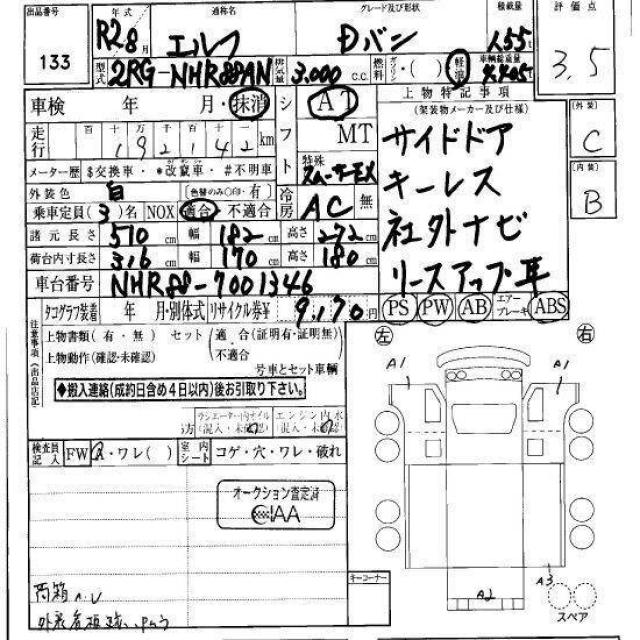 出品番号 133
年式 R2 8月
通称名 エルフ
グレード及び形状 Dバン
積載量 1.55t
評価点 3,5
型式 2RG-NHR88AN
排気量 3,000 c.c.
燃料 ガソリン・( ) 軽油
車輌総重量
外装 C
内装 B
車検 年 月・抹消
シフト AT MT
特殊 スムーサーEX
上物特記事項
(架装物メーカー及び仕様)
サイドドア
キーレス
社外ナビ
リースアップ車
走行 百 十 万 千 百 十
192142 km
メーター歴 $交換車・*改竄車・#不明車
外装色 白 (色替のみ○印・有)
冷房 AC 無
乗車定員(3)名 NOX 適合 不適合
諸元長さ 510cm 幅 182cm 高さ 272cm
荷台内寸長さ 316cm 幅 170cm 高さ 180cm
車台番号 NHR88-7001346
タコグラフ装着 年 月・別体式 リサイクル券¥ 9,170円
PS PW AB エアーブレーキ ABS
注意事項(出品店記)
上物書類(有・無) セット 適合(証明有・証明無)
上物動作(確認・未確認) 不適合
号車とセット車輌
◆搬入連絡(成約日含め4日以内)後お引取り下さい。
ラジエーター内オイル (混入・未確認)
エンジン内水 (混入・未確認)
検査員記入 FW Q・ワレ( )
室内シート コゲ・穴・ワレ・破れ
オークション査定済
CIAA
左 右
A1 A1
A2 A3
スペア
キーコーナー
荷箱A.U